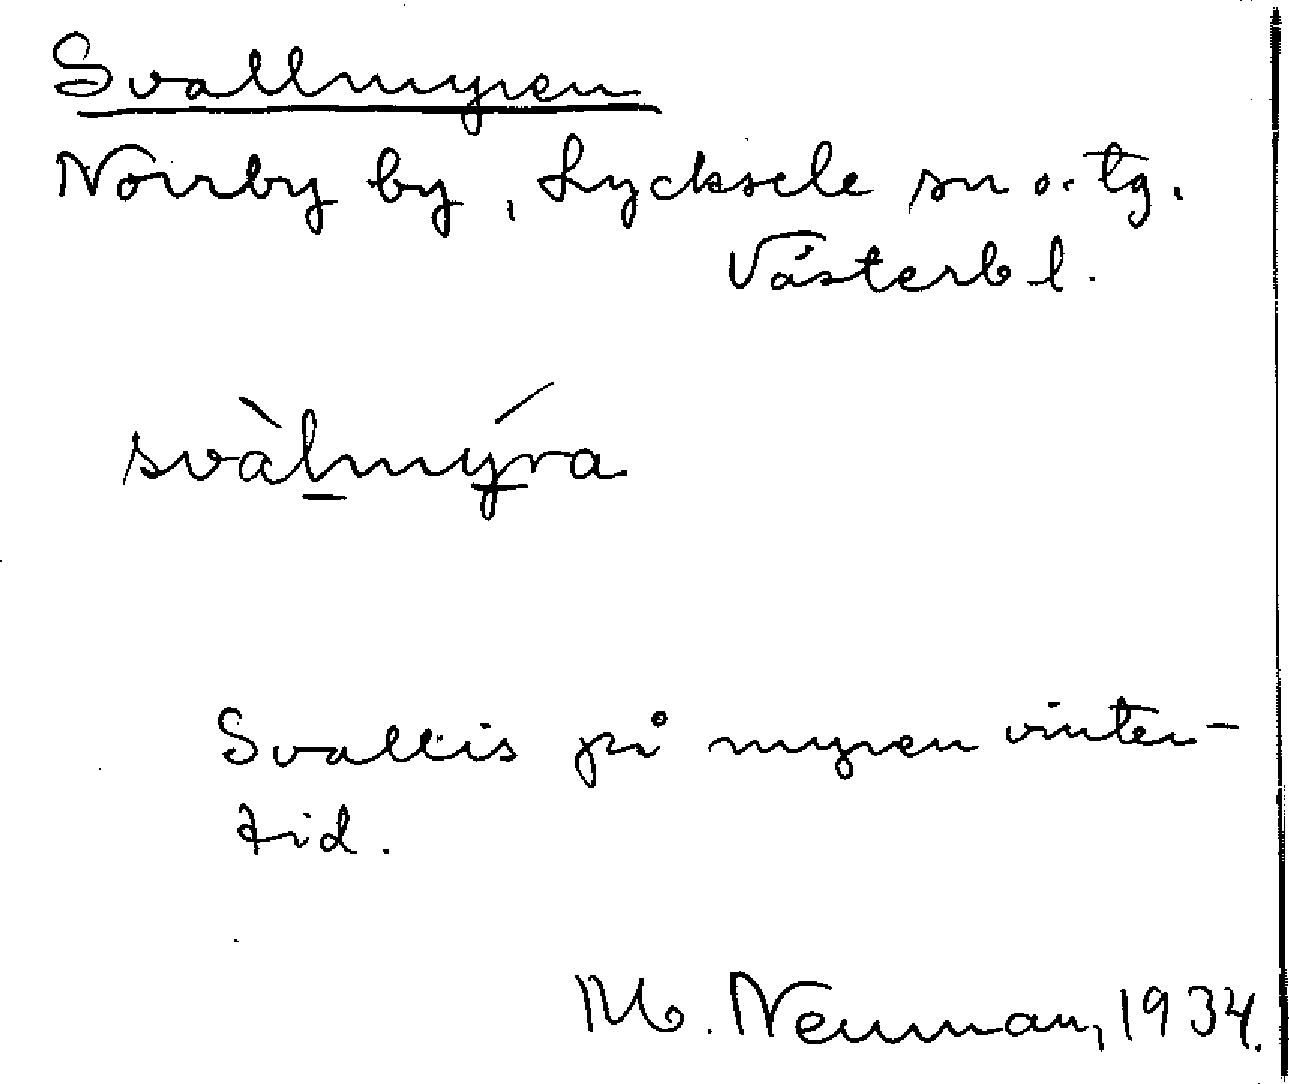 Svallmyren
Norrby by, Lycksele sn o. tg.
Västerb l.
svàlmýra
Svallis på myren vinter-
tid.
M. Neuman, 1934.